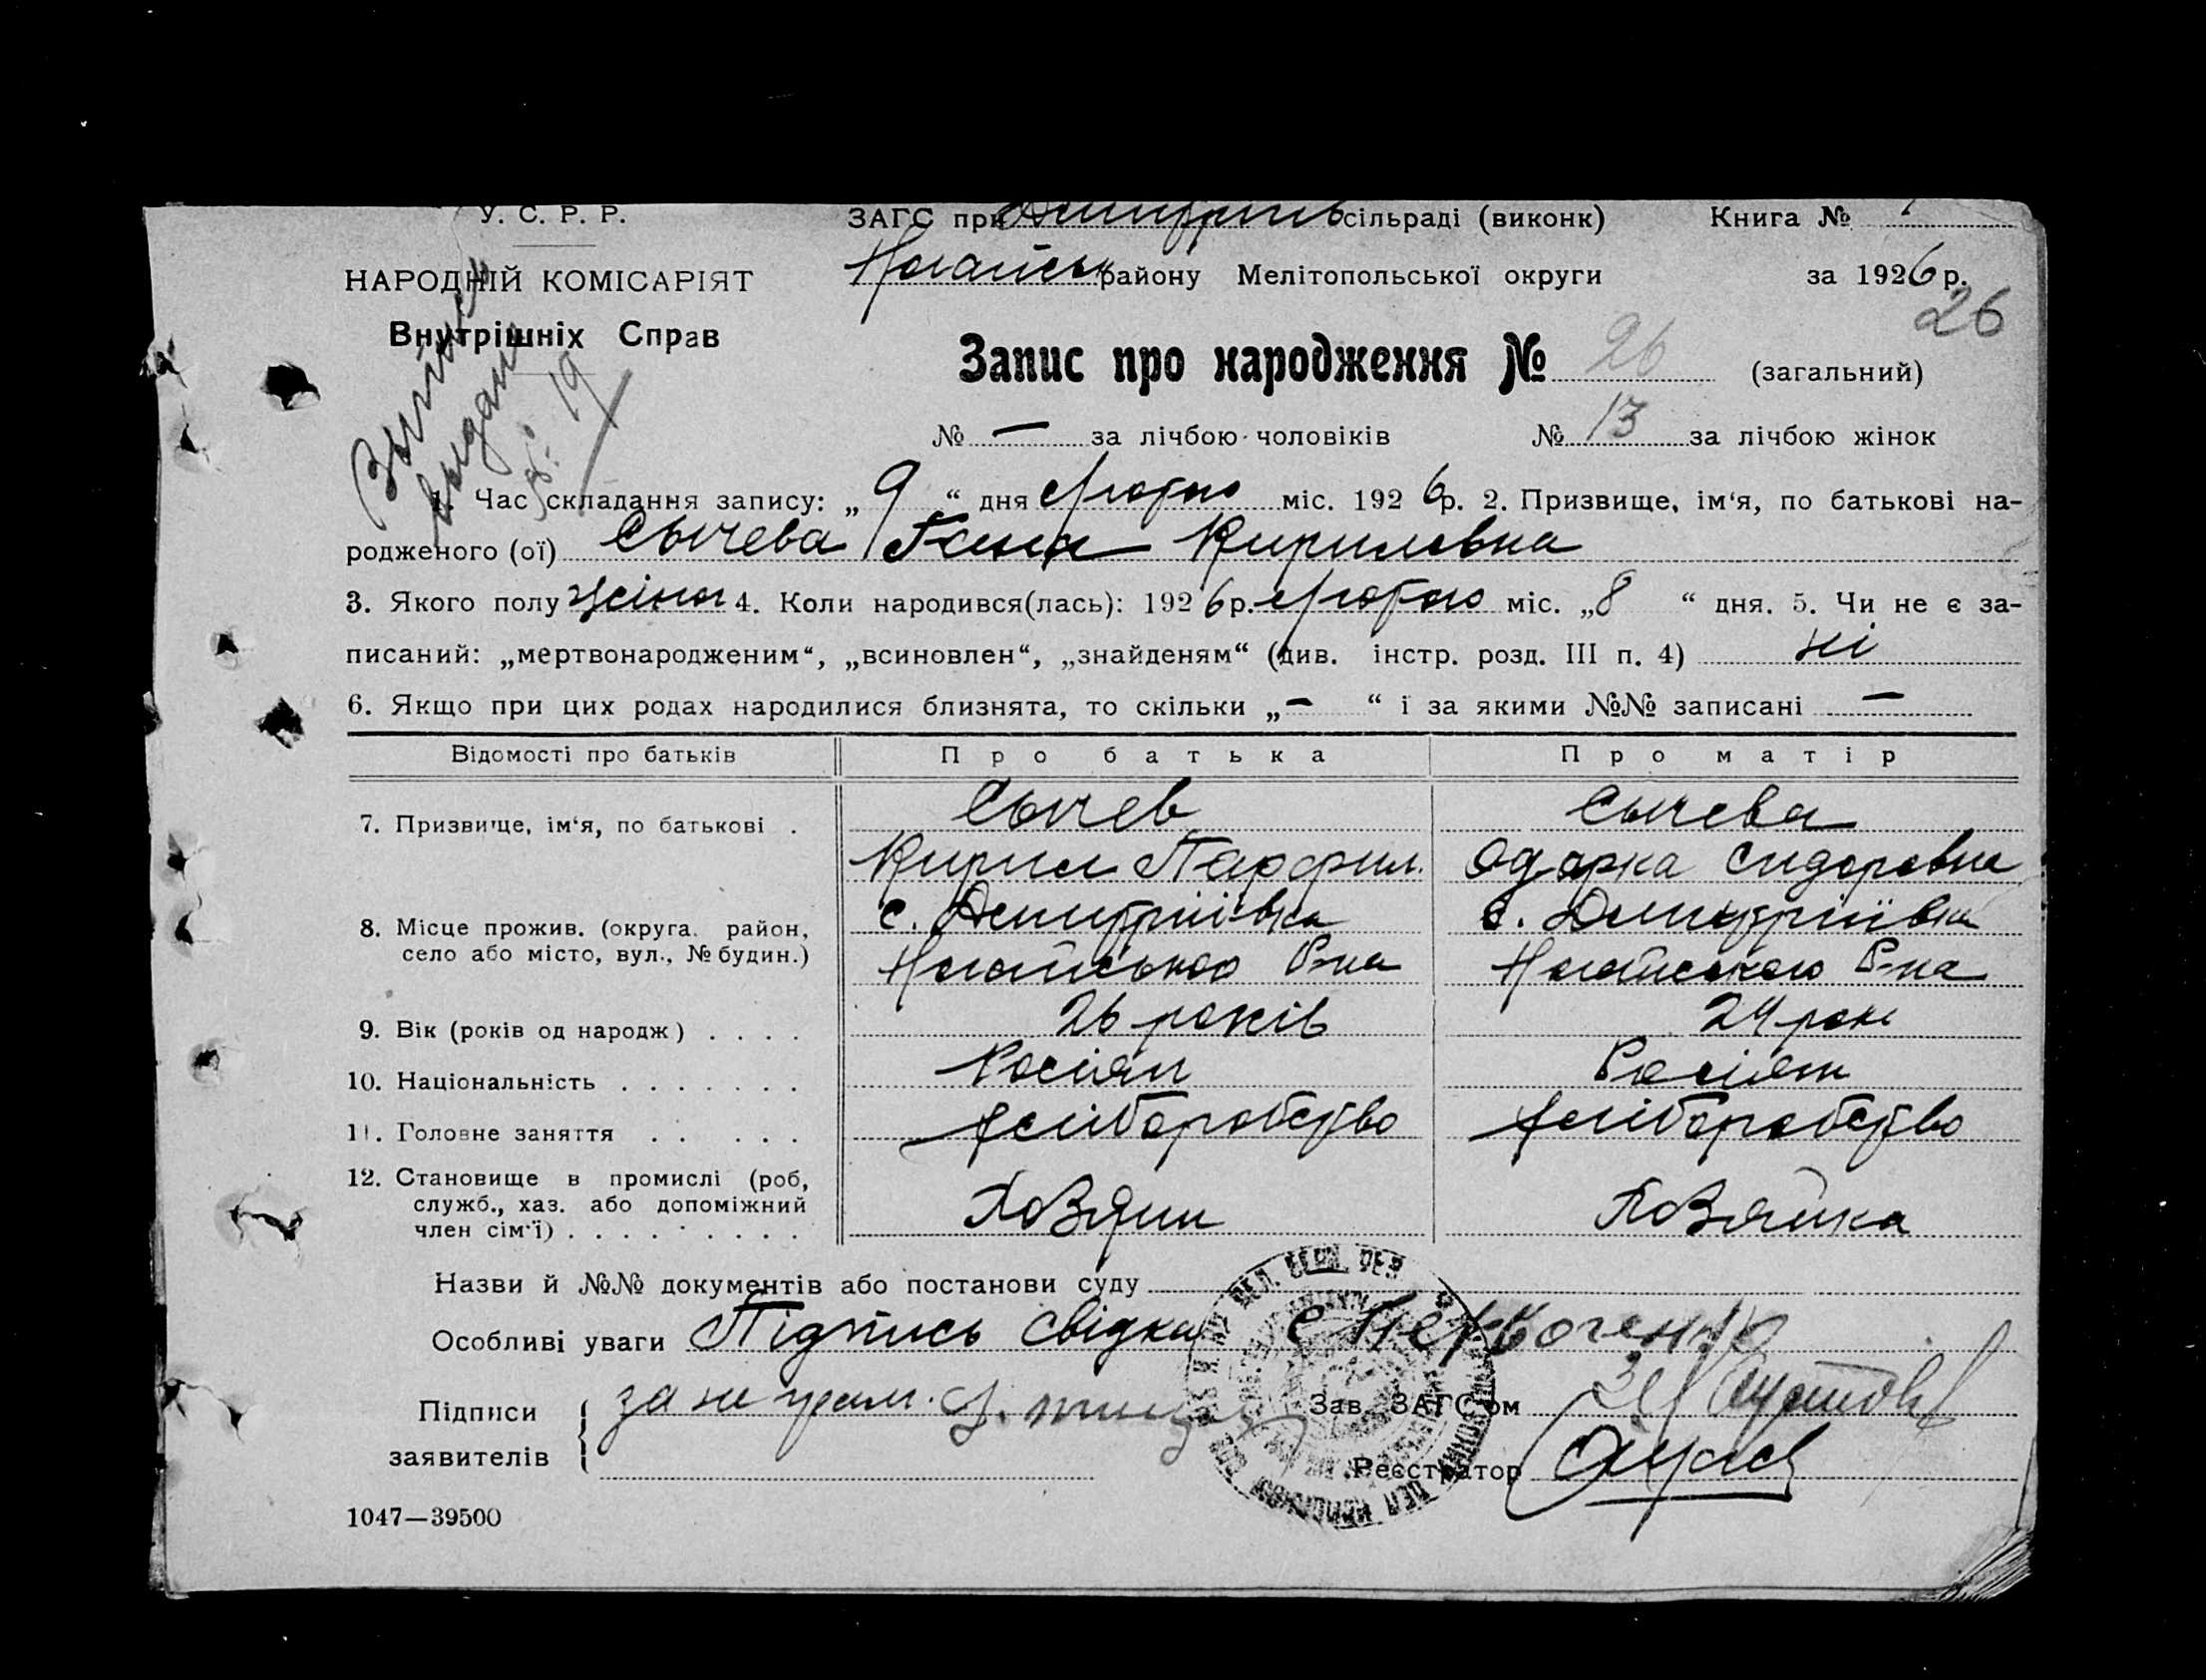 У. С. Р. Р.
ЗАГС при Дмитрів сільраді (виконк)
Книга №
НАРОДНІЙ КОМІСАРІЯТ
Внутрішніх Справ
Ногайськ району Мелітопольської округи
за 1926 р.
26
Запис про народження № 26 (загальний)
№ — за лічбою чоловіків № 13 за лічбою жінок
1. Час складання запису: „ 9 “ дня лютого міс. 1926 р. 2. Призвище, ім‘я, по батькові на-
родженого (ої) Сычева Ганна Кириловна
3. Якого полу жіноч 4. Коли народився(лась): 1926 р. лютого міс. „8 “ дня. 5. Чи не є за-
писаний: „мертвонародженим“, „всиновлен“, „знайденям“ (див. інстр. розд. III п. 4) ні
6. Якщо при цих родах народилися близнята, то скільки „— “ і за якими №№ записані —
Відомості про батьків Про батька Про матір
7. Призвище, ім‘я, по батькові . Сычев Сычева
Кирил Парфил. Одарка Сидоровна
8. Місце прожив. (округа. район, с. Дмитріївка с. Дмитріївка
село або місто, вул., № будин.) Ногайського Р-на Ногайського Р-на
9. Вік (років од народж) . . . . 26 років 24 рок
10. Національність . . . . . . . Росіян Росіян
11. Головне заняття . . . . . хліборобство хліборобство
12. Становище в промислі (роб,
служб., хаз. або допоміжний
член сім‘ї) . . . . . . . . Хозяин Хозяйка
Назви й №№ документів або постанови суду
Особливі уваги Підпись свідка
Підписи
заявителів
за не грам.
Зав. ЗАГС‘ом
Реєстратор
1047—39500